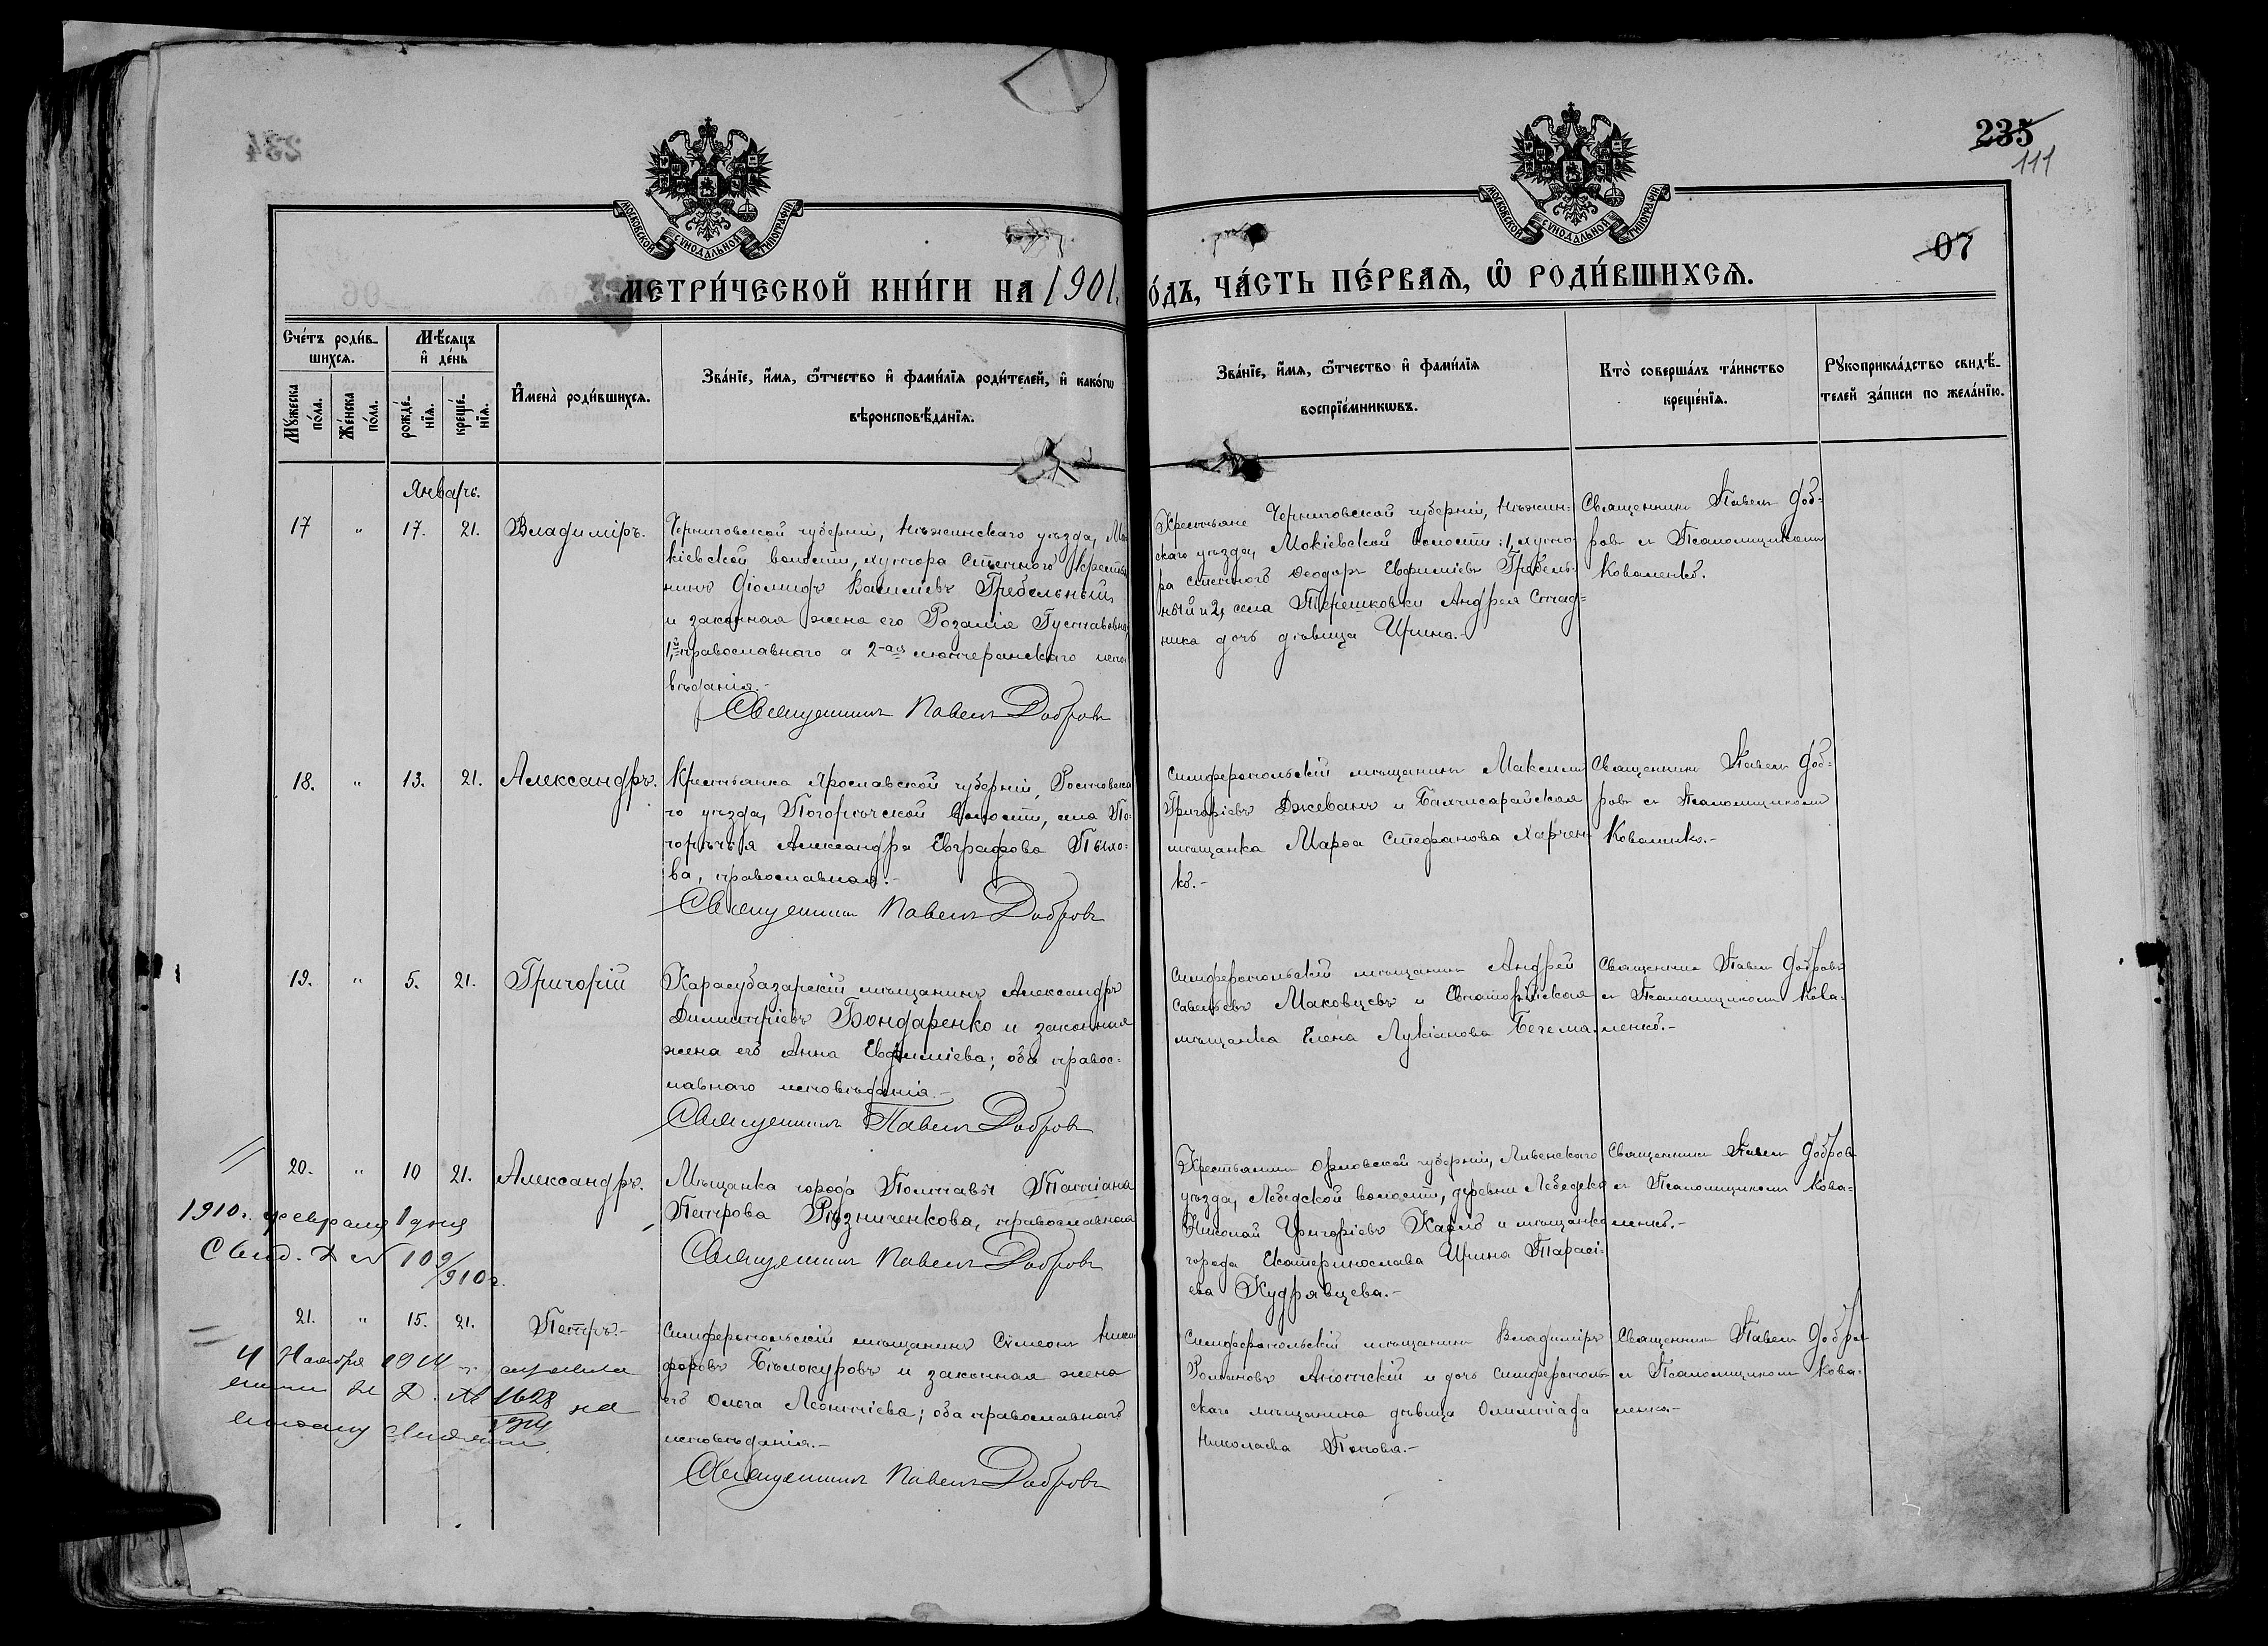 235
111
07
МОСКОВСКОЙ СѴНОДАЛЬНОЙ ТИПОГРАФІИ
МОСКОВСКОЙ СѴНОДАЛЬНОЙ ТИПОГРАФІИ
МЕТРИ́ЧЕСКОЙ КНИ́ГИ НА 1901. О́ДЪ, ЧА́СТЬ ПЕ́РВАѦ, Ѡ҆ РОДИ́ВШИХСѦ.
Сче́тъ роди́в-
шихсѧ.
Мѣ́сяцъ
и҆ де́нь
Мꙋ́жеска по́ла.
Же́нска по́ла.
рожде́-нїѧ.
креще́-нїѧ.
И҆мена̀ роди́вшихсѧ.
Зва́нїе, и҆́мѧ, ѻ҆́тчество и҆ фами́лїѧ роди́телей, и҆ како́гѡ
вѣроисповѣ́данїѧ.
Зва́нїе, и҆́мѧ, ѻ҆́тчество и҆ фами́лїѧ
воспрїе́мникѡвъ.
Кто̀ соверша́лъ та́инство
креще́нїѧ.
Рꙋкоприкла́дство свидѣ́-
телей за́писи по жела́нїю.
Январь.
17 " 17. 21. Владиміръ.
Черниговской губерніи, Нѣжинскаго уѣзда, Мо-
кіевской волости, хутора Степного крестья
нинъ Діомидъ Васильевъ Гребельный
и законная жена его Розалія Густавовна,
1,-й православнаго а 2-ая лютеранскаго испо
вѣданія.-
Священникъ Павелъ Добровъ
Крестьяне Черниговской губерніи, Нѣжин-
скаго уѣзда, Мокіевской волости: 1, хуто-
ра степного Ѳеодоръ Евфиміевъ Гребель-
ный и 2, села Терешковки Андрея Стад-
ника дочь дѣвица Ирина.-
Священникъ Павелъ Доб-
ровъ съ Псаломщикомъ
Коваленко.
18. " 13. 21. Александръ.
Крестьянка Ярославской губерніи, Ростовска
го уѣзда, Погорѣчской волости, села По-
горѣчья Александра Евграфова Пыхо-
ва, православная.-
Священникъ Павелъ Добровъ
Симферопольскій мѣщанинъ Максимъ
Григорьевъ Джеванъ и Бахчисарайская
мѣщанка Марѳа Стефанова Харчен-
ко.-
Священникъ Павелъ Доб-
ровъ съ Псаломщикомъ
Коваленко.-
19. " 5. 21. Григорій
Карасубазарскій мѣщанинъ Александръ
Димитріевъ Бондаренко и законная
жена его Анна Евфиміева; оба правос-
лавнаго исповѣданія.-
Священникъ Павелъ Добровъ
Симферопольскій мѣщанинъ Андрей
Савельевъ Маковцевъ и Евпаторійская
мѣщанка Елена Лукіанова Бегема.
Священникъ Павелъ Добровъ
съ Псаломщикомъ Кова-
ленко.-
20. " 10 21. Александръ.
Мѣщанка города Полтавы Татіана
Петрова Рѣзниченкова, православная
Священникъ Павелъ Добровъ
Крестьянинъ Орловской губерніи, Ливенскаго
уѣзда, Лебедской волости, деревни Лебедска
Николай Григорьевъ Карло и мѣщанка
города Екатеринослава Ирина Тарасі-
ева Кудрявцева.-
Священникъ Павелъ Добровъ
съ Псаломщикомъ Кова-
ленко.-
1910. февраля 1 дня
Свид. № 109/910г.
21. " 15. 21. Петръ.-
Симферопольскій мѣщанинъ Сѵмеонъ Ники
форовъ Бѣлокуровъ и законная жена
его Ольга Леонтіева; оба православнаго
исповѣданія.-
Священникъ Павелъ Добровъ
Симферопольскій мѣщанинъ Владиміръ
Романовъ Анотскій и дочь Симферополь-
скаго мѣщанина дѣвица Олимпіада
Николаева Попова.-
Священникъ Павелъ Добров
съ Псаломщикомъ Кова-
ленко.-
4 Ноября 1914 г.
№ 1628 на
1914